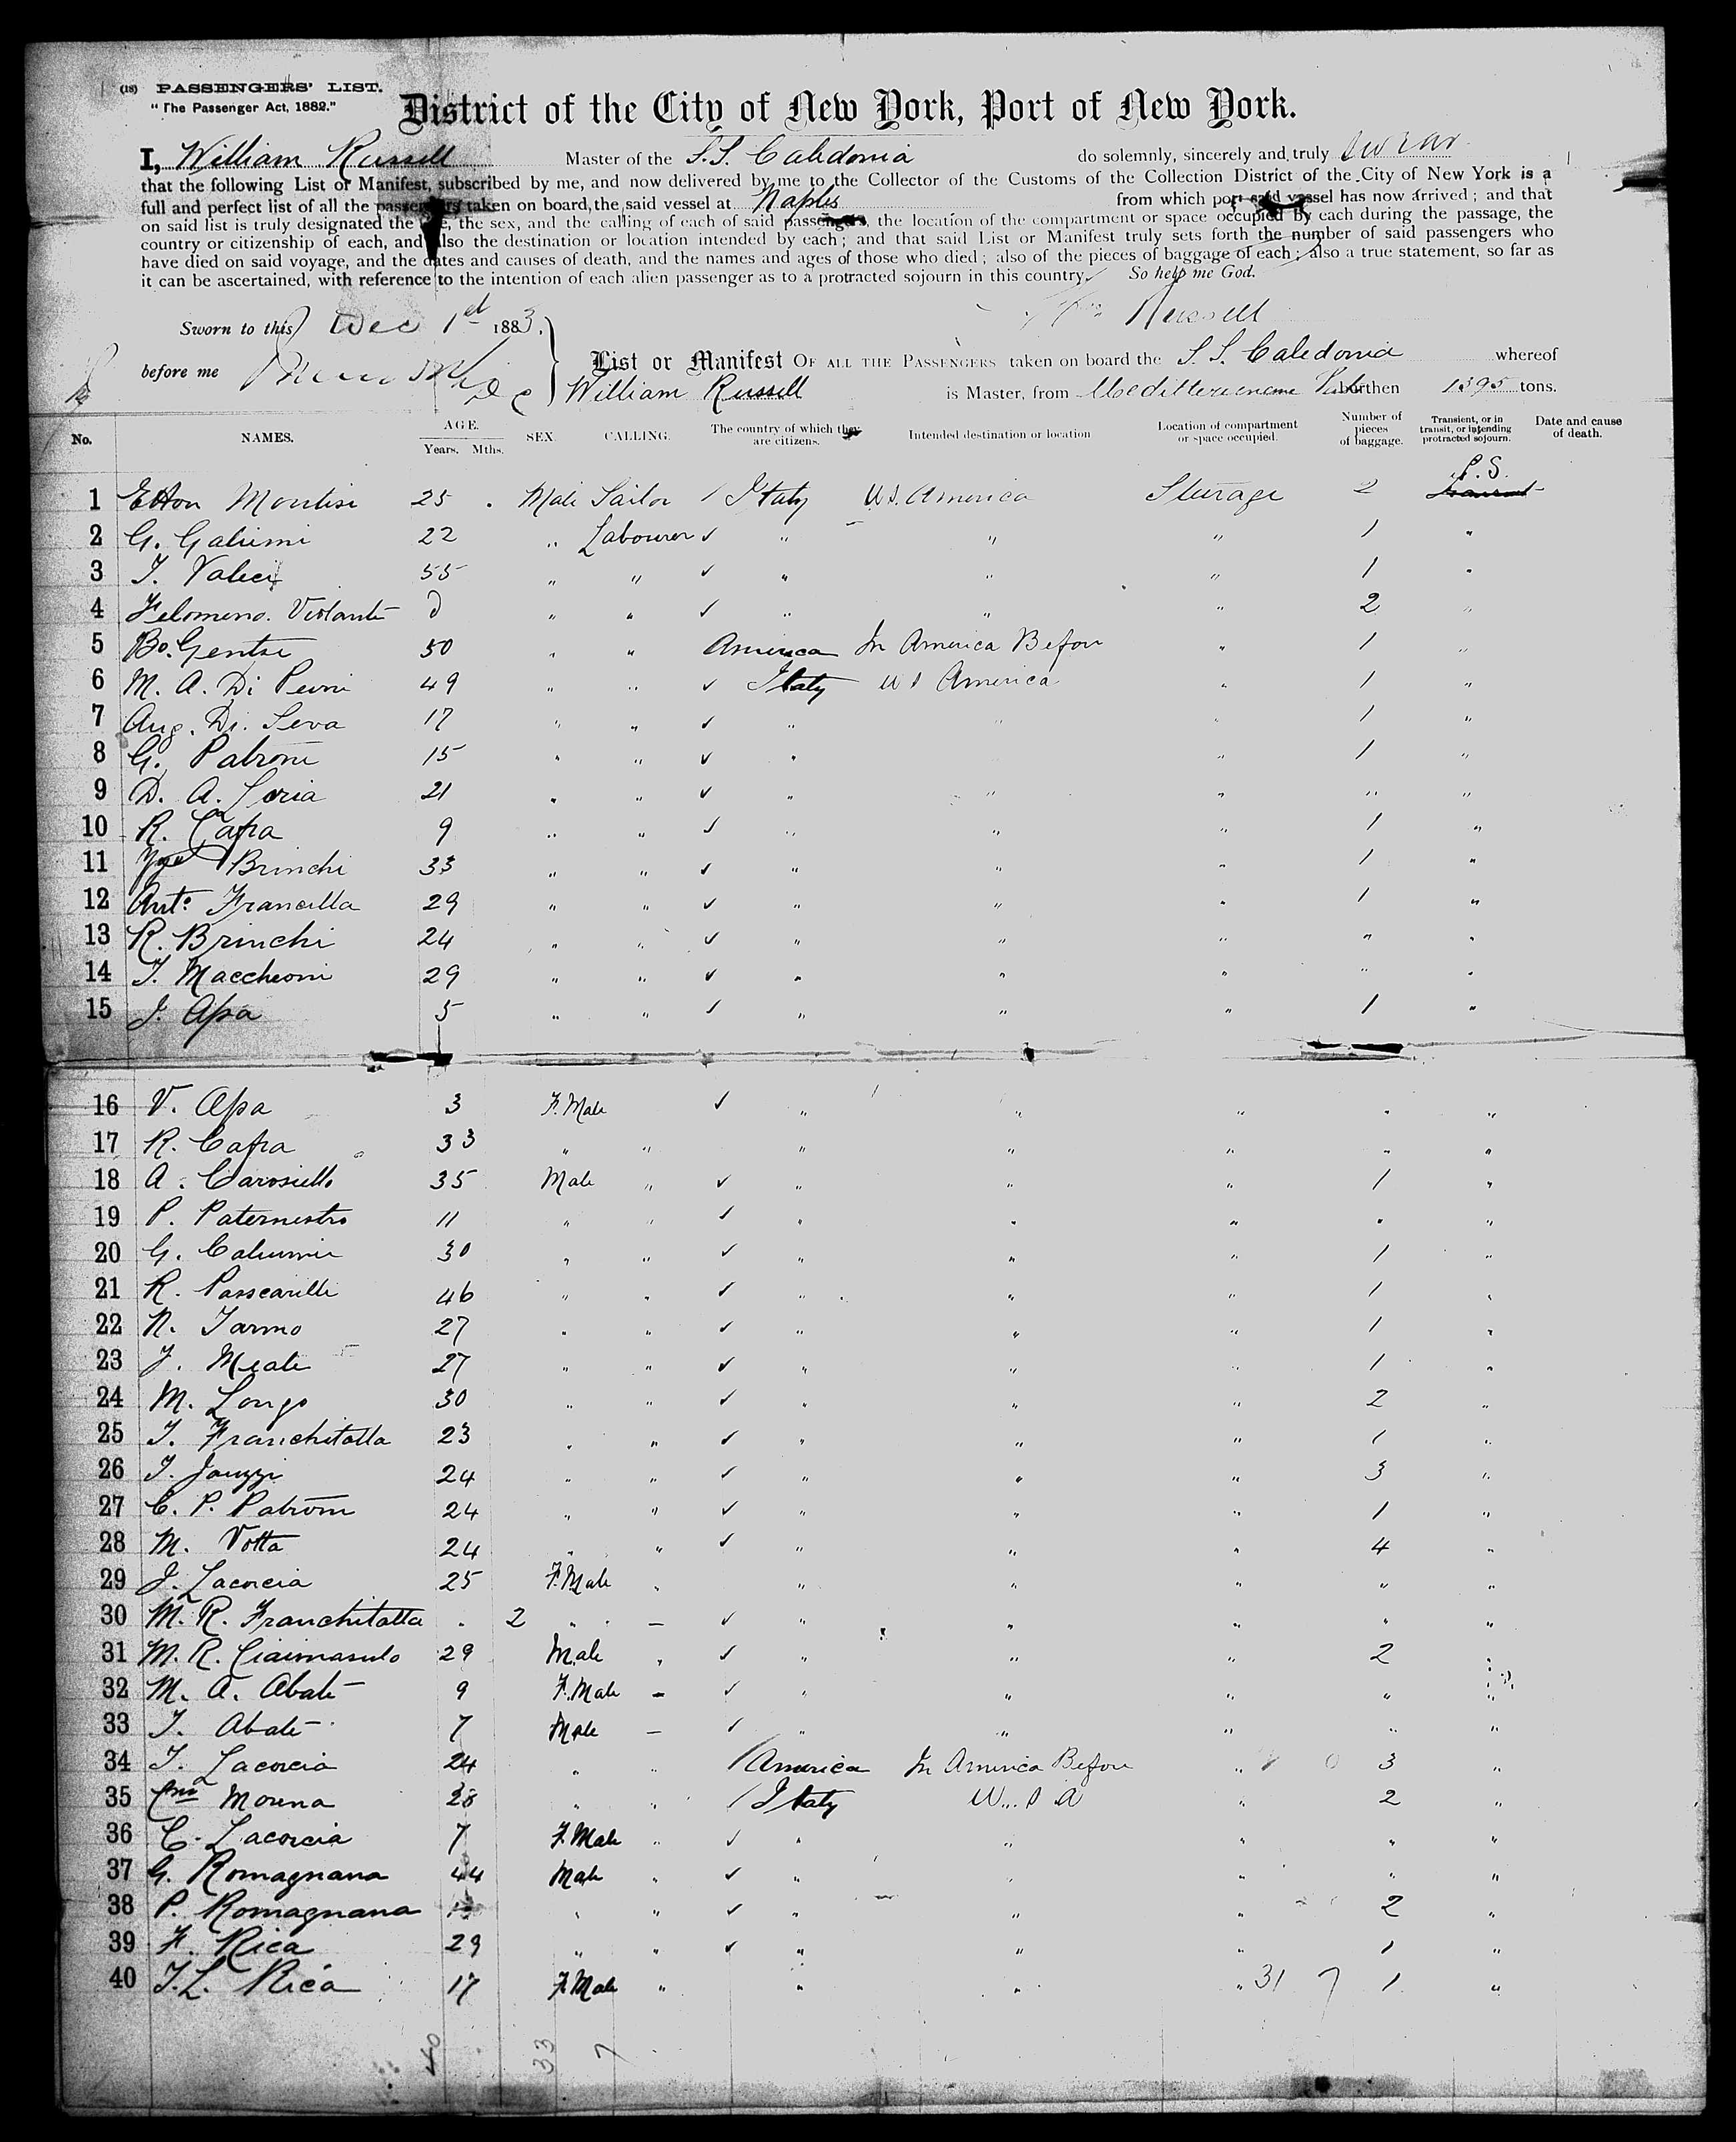 (18) PASSENGERS' LIST.
"The Passenger Act, 1882."
District of the City of New York, Port of New York.
I, William Russell Master of the S.S. Caledonia do solemnly, sincerely and truly swear
that the following List or Manifest, subscribed by me, and now delivered by me to the Collector of the Customs of the Collection District of the City of New York is a
full and perfect list of all the passengers taken on board the said vessel at Naples from which port said vessel has now arrived; and that
on said list is truly designated the the sex, and the calling of each of said passengers, the location of the compartment or space occupied by each during the passage, the
country or citizenship of each, and also the destination or location intended by each; and that said List or Manifest truly sets forth the number of said passengers who
have died on said voyage, and the dates and causes of death, and the names and ages of those who died; also of the pieces of baggage of each; also a true statement, so far as
it can be ascertained, with reference to the intention of each alien passenger as to a protracted sojourn in this country. So help me God.
Sworn to this Dec 1st 1883. Russell
before me
List or Manifest OF ALL THE PASSENGERS taken on board the S.S. Caledonia whereof
William Russell is Master, from burthen 1395 tons.
No. NAMES. AGE. Years. Mths. SEX. CALLING. The country of which they are citizens. Intended destination or location Location of compartment or space occupied. Number of pieces of baggage. Transient, or in transit, or intending protracted sojourn. Date and cause of death.
P.S.
1 Montesi 25 Male Sailor Italy U.S. America Steerage 2
2 G. Galiemi 22 " Labourer " " " 1 "
3 T. 55 " " " " " 1 "
4 Felomeno Violante " " " " " 2 "
5 Bo. Gentse 50 " " America In America Before " 1 "
6 M. A. Di 49 " " Italy U S America " 1 "
7 Aug. Di. Seva 17 " " " " " 1 "
8 G. Patrone 15 " " " " 1 "
9 D. A. Loria 21 " " " " " " "
10 R. Cafra 9 " " " " " 1 "
11 Brinchi 33 " " " " " 1 "
12 Anto. Francilla 29 " " " " " 1 "
13 R. Brinchi 24 " " " " " " "
14 T. Maccheoni 29 " " " " " " "
15 J. Apa 5 " " " " " 1 "
16 V. Apa 3 F. Male " " " " "
17 R. Cafra 33 " " " " " " "
18 A. Carosiello 35 Male " " " " 1 "
19 P. Paternostro 11 " " " " " " "
20 G. Caliumie 30 " " " " " 1 "
21 R. Passcarille 46 " " " " " 1 "
22 N. Iarmo 27 " " " " " 1 "
23 J. Meale 27 " " " " " 1 "
24 M. Longo 30 " " " " " 2 "
25 T. Franchitalla 23 " " " " " 1 "
26 T. Jauzzi 24 " " " " " 3 "
27 C. P. Patrone 24 " " " " " 1 "
28 M. Votta 24 " " " " " 4 "
29 J. Lacorcia 25 F. Male " " " " " "
30 M. R. Franchitalla . 2 " — " " " " "
31 M. R. Ciaimasulo 29 Male " " " " 2 "
32 M. A. Abate 9 F. Male - " " " " "
33 T. Abate 7 Male — " " " " "
34 T. Lacorcia 24 " " America In America Before " 3 "
35 Morena 28 " " Italy U.S A " 2 "
36 C. Lacorcia 7 F. Male " " " " " "
37 G. Romagnana 44 Male " " " " " "
38 P. Romagnana " " " " " 2 "
39 F. Rica 29 " " " " " 1 "
40 T. L. Rica 17 F. Male " " " " 31 7 1 "
40 33 7